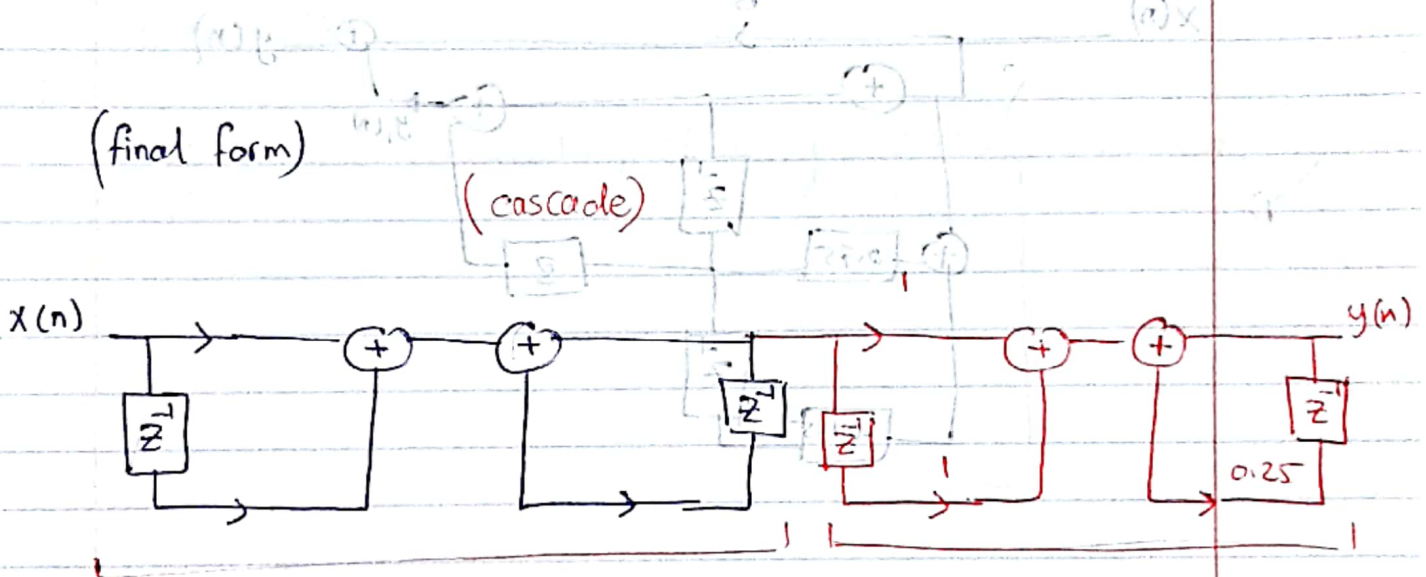 (final form)
(cascade)
1
x(n) + + + + y(n)
z⁻¹ z⁻¹ z⁻¹ z⁻¹
1 0.25